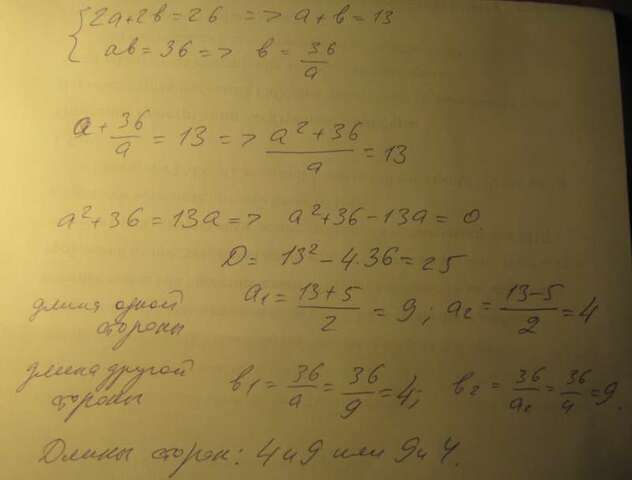 {2a+2b=26 => a+b=13
ab=36 => b=36/a
a+36/a=13 => (a²+36)/a=13
a²+36=13a => a²+36-13a=0
D= 13²-4·36=25
длина одной стороны a₁=(13+5)/2=9; a₂=(13-5)/2=4
длина другой стороны b₁=36/a=36/9=4; b₂=36/a₂=36/4=9.
Длины сторон: 4 и 9 или 9 и 4.